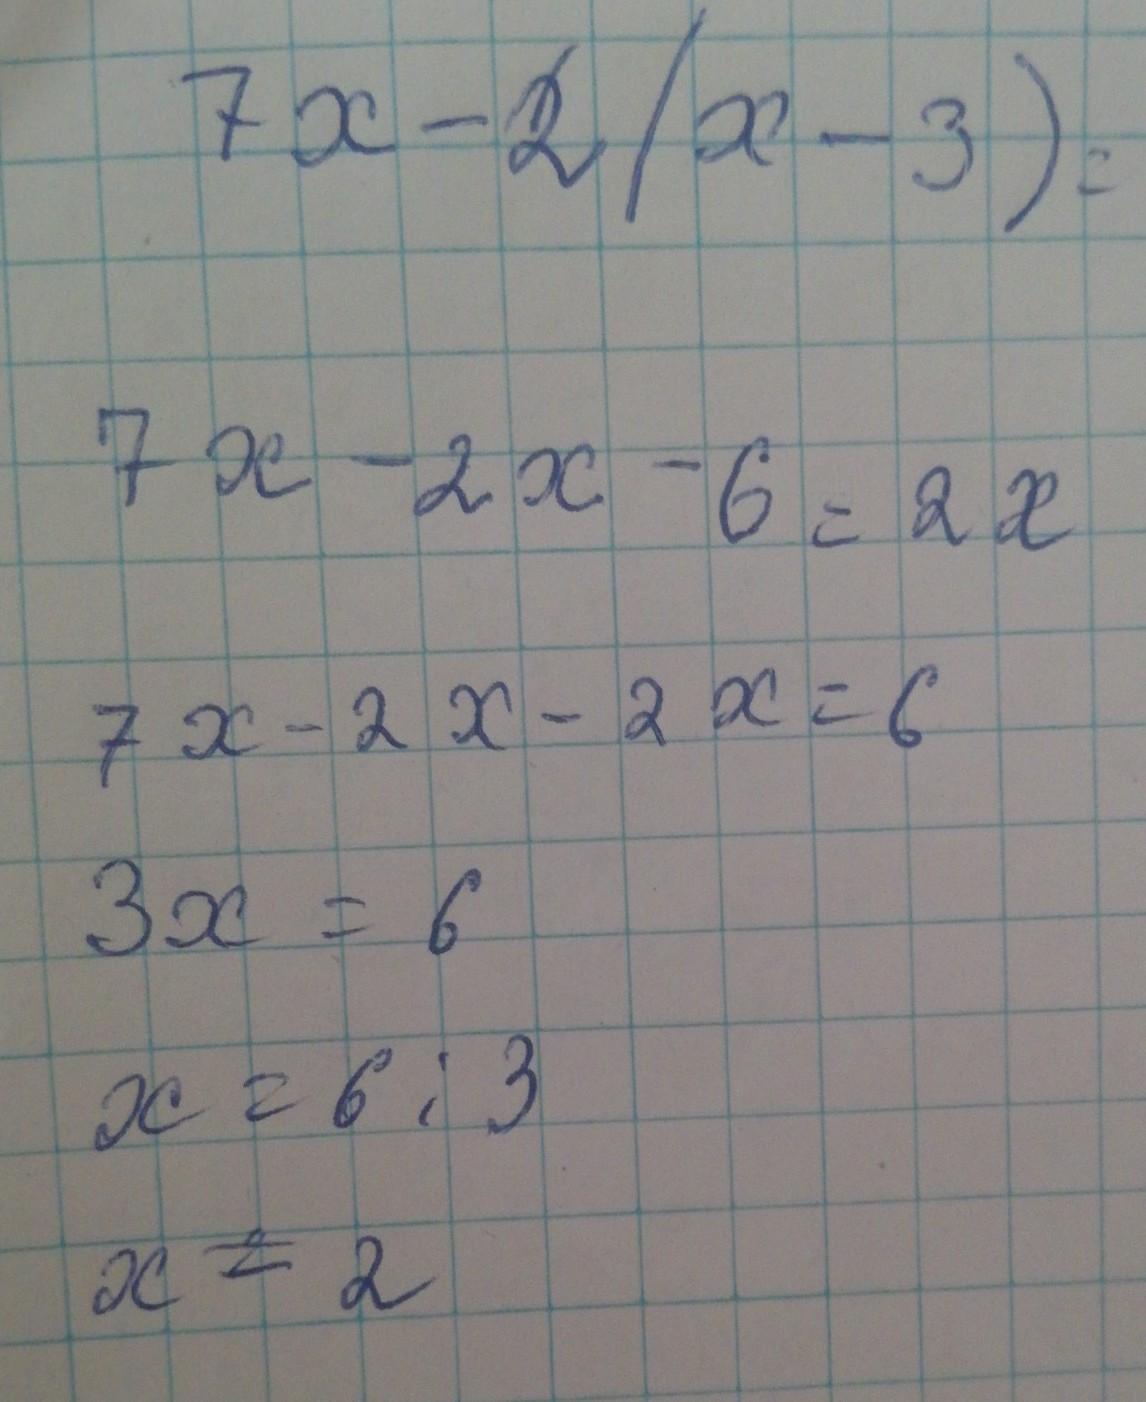 7x-2(x-3)=
7x-2x-6=2x
7x-2x-2x=6
3x=6
x=6:3
x=2